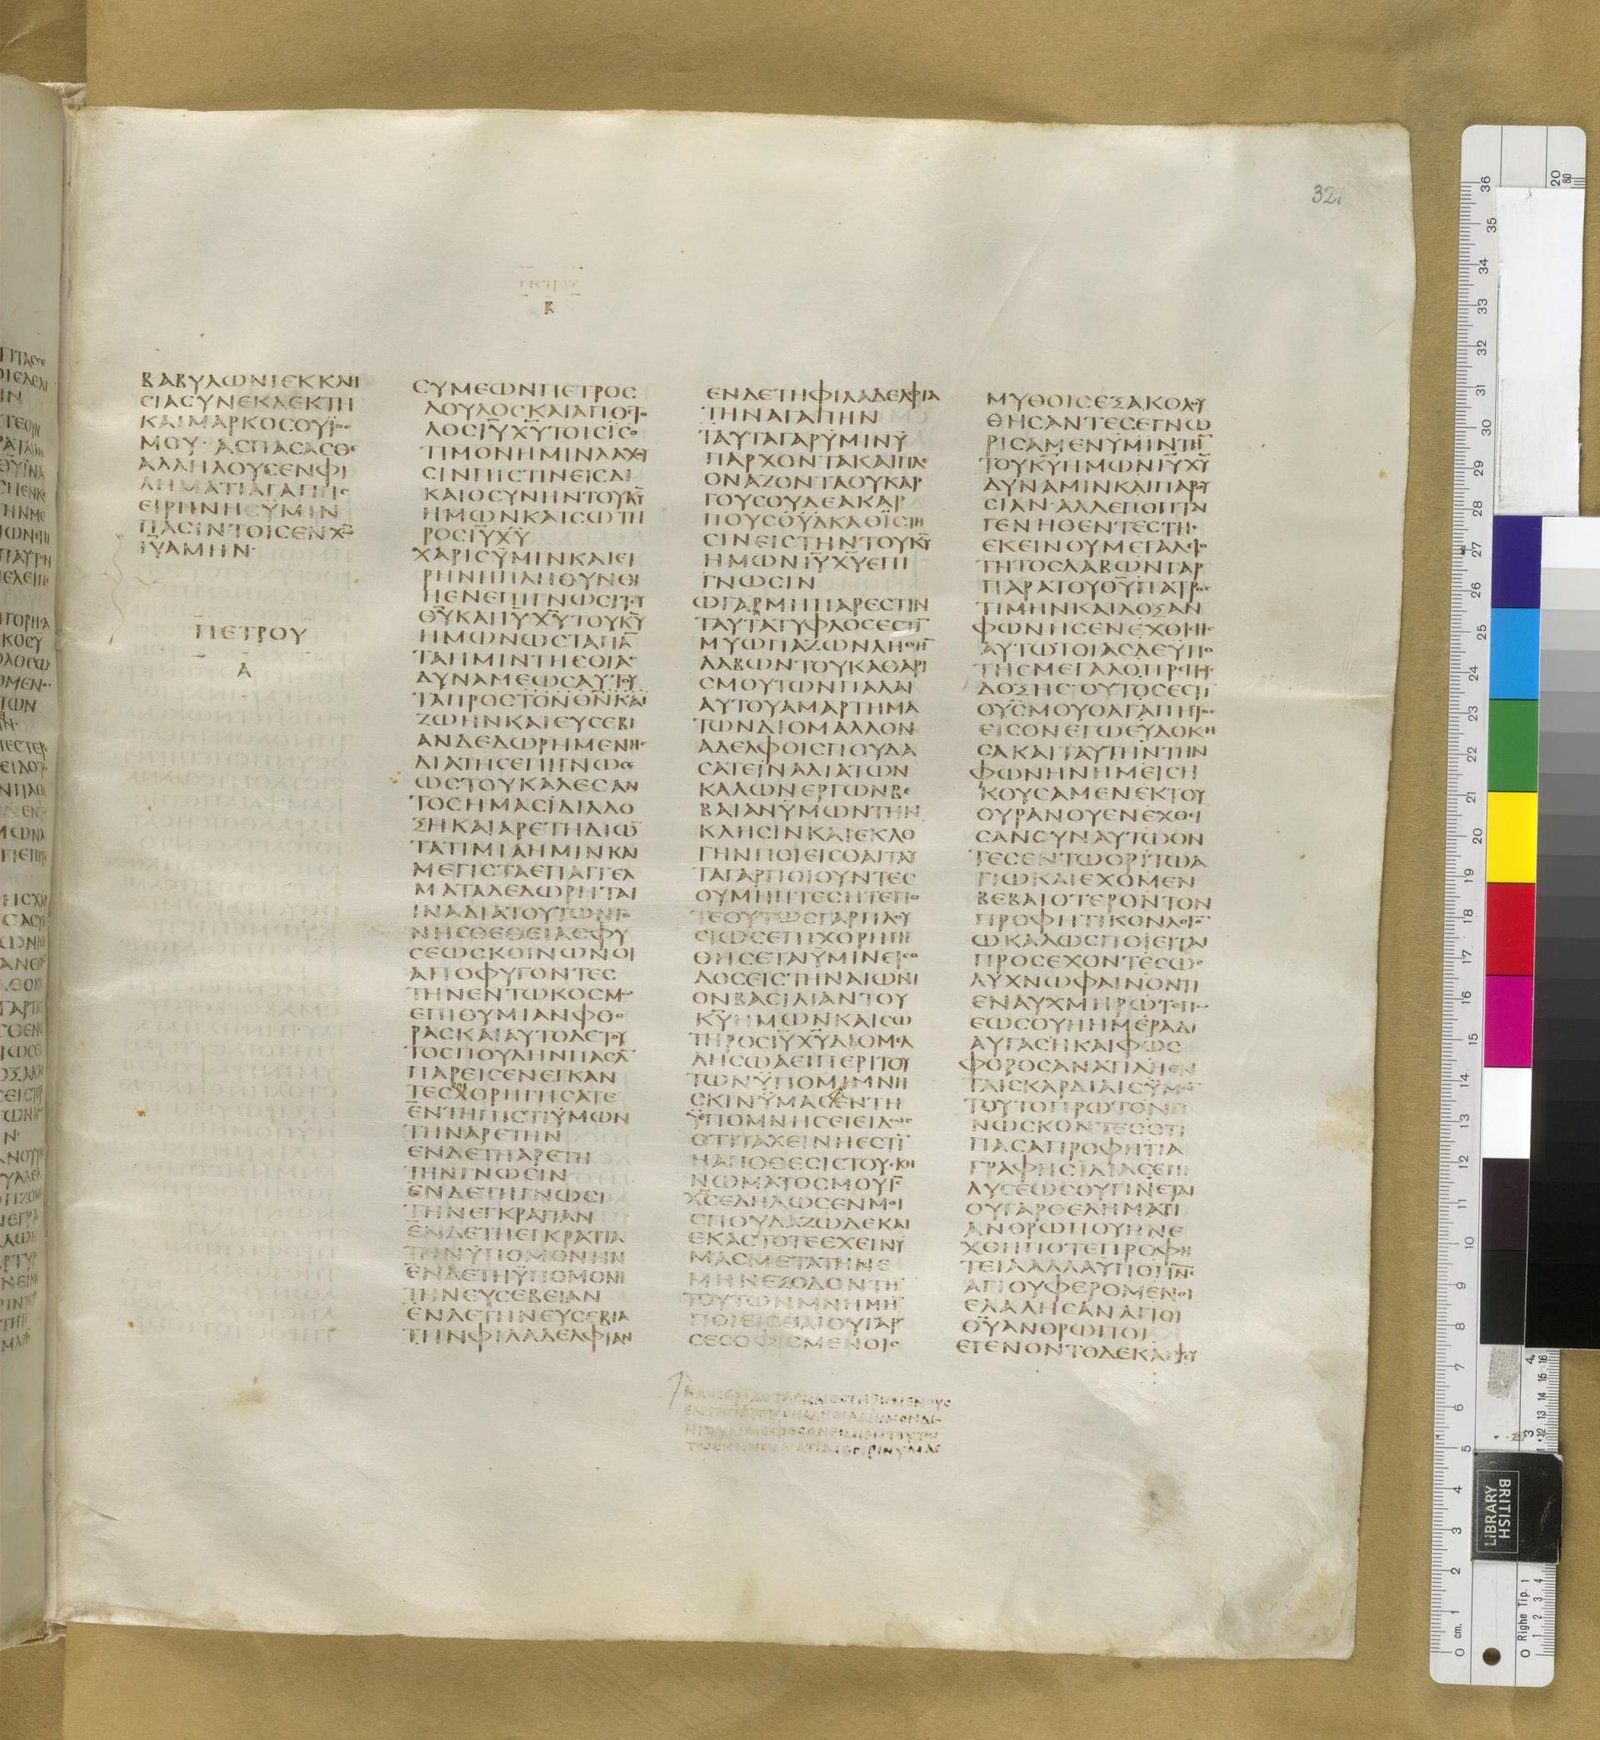 321
ΠΕΤΡΟΥ
Β
ΒΑΒΥΛΩΝΙΕΚΚΛΗ
ΣΙΑΣΥΝΕΚΛΕΚΤΗ
ΚΑΙΜΑΡΚΟΣΟΥΪΟΣ
ΜΟΥ· ΑΣΠΑΣΑΣΘΕ
ΑΛΛΗΛΟΥΣΕΝΦΙ
ΛΗΜΑΤΙΑΓΑΠΗΣ
ΕΙΡΗΝΗΕΥΜΙΝ
ΠΑΣΙΝΤΟΙΣΕΝΧΩ
ΙΥΑΜΗΝ·
ΠΕΤΡΟΥ
Α
ΣΥΜΕΩΝΠΕΤΡΟΣ
ΔΟΥΛΟΣΚΑΙΑΠΟΣΤΟ
ΛΟΣΙΥΧΥΤΟΙΣΙΣΟ
ΤΙΜΟΝΗΜΙΝΛΑΧΟΥ
ΣΙΝΠΙΣΤΙΝΕΙΣΔΙ
ΚΑΙΟΣΥΝΗΝΤΟΥΚΥ
ΗΜΩΝΚΑΙΣΩΤΗ
ΡΟΣΙΥΧΥ
ΧΑΡΙΣΫΜΙΝΚΑΙΕΙ
ΡΗΝΗΠΛΗΘΥΝΘΙ
ΗΕΝΕΠΙΓΝΩΣΙΤΟΥ
ΘΥΚΑΙΙΥΧΥΤΟΥΚΥ
ΗΜΩΝΩΣΤΑΠΑ
ΤΑΗΜΙΝΤΗΣΘΙΑΣ
ΔΥΝΑΜΕΩΣΑΥΤΟΥ
ΤΑΠΡΟΣΤΟΝΘΝΚΑΙ
ΖΩΗΝΚΑΙΕΥΣΕΒΙ
ΑΝΔΕΔΩΡΗΜΕΝΗΣ
ΔΙΑΤΗΣΕΠΙΓΝΩΣΕ
ΩΣΤΟΥΚΑΛΕΣΑΝ
ΤΟΣΗΜΑΣΙΔΙΑΔΟ
ΞΗΚΑΙΑΡΕΤΗΔΙΩ
ΤΑΤΙΜΙΑΗΜΙΝΚΑΙ
ΜΕΓΙΣΤΑΕΠΑΓΓΕΛ
ΜΑΤΑΔΕΔΩΡΗΤΑΙ
ΙΝΑΔΙΑΤΟΥΤΩΝΓΕ
ΝΗΣΘΕΘΕΙΑΣΦΥ
ΣΕΩΣΚΟΙΝΩΝΟΙ
ΑΠΟΦΥΓΟΝΤΕΣ
ΤΗΝΕΝΤΩΚΟΣΜΩ
ΕΠΙΘΥΜΙΑΝΦΘΟ
ΡΑΣΚΑΙΑΥΤΟΔΕΤΟΥ
ΤΟΣΠΟΥΔΗΝΠΑΣΑ
ΠΑΡΕΙΣΕΝΕΓΚΑΝ
ΤΕΣΧΟΡΗΓΗΣΑΤΕ
ΕΝΤΗΠΙΣΤΙΫΜΩΝ
ΤΗΝΑΡΕΤΗΝ
ΕΝΔΕΤΗΑΡΕΤΗ
ΤΗΝΓΝΩΣΙΝ
ΕΝΔΕΤΗΓΝΩΣΙ
ΤΗΝΕΓΚΡΑΤΙΑΝ
ΕΝΔΕΤΗΕΓΚΡΑΤΙΑ
ΤΗΝΫΠΟΜΟΝΗΝ
ΕΝΔΕΤΗΫΠΟΜΟΝΙ
ΤΗΝΕΥΣΕΒΕΙΑΝ
ΕΝΔΕΤΗΝΕΥΣΕΒΙΑ
ΤΗΝΦΙΛΑΔΕΛΦΙΑΝ
ΕΝΔΕΤΗΦΙΛΑΔΕΛΦΙΑ
ΤΗΝΑΓΑΠΗΝ
ΤΑΥΤΑΓΑΡΫΜΙΝΫ
ΠΑΡΧΟΝΤΑΚΑΙΠΛΕ
ΟΝΑΖΟΝΤΑΟΥΚΑΡ
ΓΟΥΣΟΥΔΕΑΚΑΡ
ΠΟΥΣΟΥΔΚΑΘΙΣΤΗ
ΣΙΝΕΙΣΤΗΝΤΟΥΚΥ
ΗΜΩΝΙΥΧΥΕΠΙ
ΓΝΩΣΙΝ
ΩΓΑΡΜΗΠΑΡΕΣΤΙΝ
ΤΑΥΤΑΤΥΦΛΟΣΕΣΤΙ
ΜΥΩΠΑΖΩΝΛΗΘΗ
ΛΑΒΩΝΤΟΥΚΑΘΑΡΙ
ΣΜΟΥΤΩΝΠΑΛΑΙ
ΑΥΤΟΥΑΜΑΡΤΗΜΑ
ΤΩΝΔΙΟΜΑΛΛΟΝ
ΑΔΕΛΦΟΙΣΠΟΥΔΑ
ΣΑΤΕΙΝΑΔΙΑΤΩΝ
ΚΑΛΩΝΕΡΓΩΝΒΕ
ΒΑΙΑΝΫΜΩΝΤΗΝ
ΚΛΗΣΙΝΚΑΙΕΚΛΟ
ΓΗΝΠΟΙΕΙΣΘΑΙΤΑΥ
ΤΑΓΑΡΠΟΙΟΥΝΤΕΣ
ΟΥΜΗΠΤΕΣΗΤΕΠΟ
ΤΕΟΥΤΩΣΓΑΡΠΛΟΥ
ΣΙΩΣΕΠΙΧΟΡΗΓΗ
ΘΗΣΕΤΑΙΫΜΙΝΕΙΣΟ
ΔΟΣΕΙΣΤΗΝΑΙΩΝΙ
ΟΝΒΑΣΙΛΙΑΝΤΟΥ
ΚΥΗΜΩΝΚΑΙΣΩ
ΤΗΡΟΣΙΥΧΥΔΙΟΜΕΛ
ΛΗΣΩΑΕΙΠΕΡΙΤΟΥ
ΤΩΝΫΠΟΜΙΜΝΗ
ΣΚΙΝΫΜΑΣΕΝΤΗ
ΫΠΟΜΝΗΣΕΙΕΙΔΩΣ
ΟΤΙΤΑΧΕΙΝΗΕΣΤΙ
ΗΑΠΟΘΕΣΙΣΤΟΥΣΚΗ
ΝΩΜΑΤΟΣΜΟΥΚ
ΧΣΕΔΗΛΩΣΕΝΜΟΙ
ΣΠΟΥΔΑΖΩΔΕΚΑΙ
ΕΚΑΣΤΟΤΕΕΧΕΙΝΫ
ΜΑΣΜΕΤΑΤΗΝΕ
ΜΗΝΕΞΟΔΟΝΤΗ
ΤΟΥΤΩΝΜΝΗΜΗ
ΠΟΙΕΙΣΘΑΙΟΥΓΑΡ
ΣΕΣΟΦΙΣΜΕΝΟΙΣ
ΜΥΘΟΙΣΕΞΑΚΟΛΟΥ
ΘΗΣΑΝΤΕΣΕΓΝΩ
ΡΙΣΑΜΕΝΫΜΙΝΤΗ
ΤΟΥΚΥΗΜΩΝΙΥΧΥ
ΔΥΝΑΜΙΝΚΑΙΠΑΡΟΥ
ΣΙΑΝ·ΑΛΛΕΠΟΠΤΑΙ
ΓΕΝΗΘΕΝΤΕΣΤΗΣ
ΕΚΕΙΝΟΥΜΕΓΑΛΙΟ
ΤΗΤΟΣΛΑΒΩΝΓΑΡ
ΠΑΡΑΤΟΥΘΥΠΑΤΡΟΣ
ΤΙΜΗΝΚΑΙΔΟΞΑΝ
ΦΩΝΗΣΕΝΕΧΘΙΣΗΣ
ΑΥΤΩΤΟΙΑΣΔΕΥΠΟ
ΤΗΣΜΕΓΑΛΟΠΡΕΠΗΣ
ΔΟΞΗΣ·ΟΥΤΟΣΕΣΤΙ
ΟΥΣΜΟΥΟΑΓΑΠΗΤΟΣ
ΕΙΣΟΝΕΓΩΕΥΔΟΚΗ
ΣΑΚΑΙΤΑΥΤΗΝΤΗΝ
ΦΩΝΗΝΗΜΕΙΣΗ
ΚΟΥΣΑΜΕΝΕΚΤΟΥ
ΟΥΡΑΝΟΥΕΝΕΧΘΙ
ΣΑΝΣΥΝΑΥΤΩΟΝ
ΤΕΣΕΝΤΩΟΡΙΤΩΑ
ΓΙΩΚΑΙΕΧΟΜΕΝ
ΒΕΒΑΙΟΤΕΡΟΝΤΟΝ
ΠΡΟΦΗΤΙΚΟΝΛΟΓΟ
ΩΚΑΛΩΣΠΟΙΕΙΤΑΙ
ΠΡΟΣΕΧΟΝΤΕΣΩΣ
ΛΥΧΝΩΦΑΙΝΟΝΤΙ
ΕΝΑΥΧΜΗΡΩΤΟΠΩ
ΕΩΣΟΥΗΗΜΕΡΑΔΙ
ΑΥΓΑΣΗΚΑΙΦΩΣ
ΦΟΡΟΣΑΝΑΤΙΛΗΕΝ
ΤΑΙΣΚΑΡΔΙΑΙΣΫΜΩ
ΤΟΥΤΟΠΡΩΤΟΝΓΙ
ΝΩΣΚΟΝΤΕΣΟΤΙ
ΠΑΣΑΠΡΟΦΗΤΙΑ
ΓΡΑΦΗΣΙΔΙΑΣΕΠΙ
ΛΥΣΕΩΣΟΥΓΙΝΕΤΑΙ
ΟΥΓΑΡΘΕΛΗΜΑΤΙ
ΑΝΘΡΩΠΟΥΗΝΕ
ΧΘΗΠΟΤΕΠΡΟΦΗ
ΤΕΙΑΑΛΛΑΥΠΟΠΝΣ
ΑΓΙΟΥΦΕΡΟΜΕΝΟΙ
ΕΛΑΛΗΣΑΝΑΓΙΟΙ
ΘΥΑΝΘΡΩΠΟΙ
ΕΓΕΝΟΝΤΟΔΕΚΑΙΨΕΥ